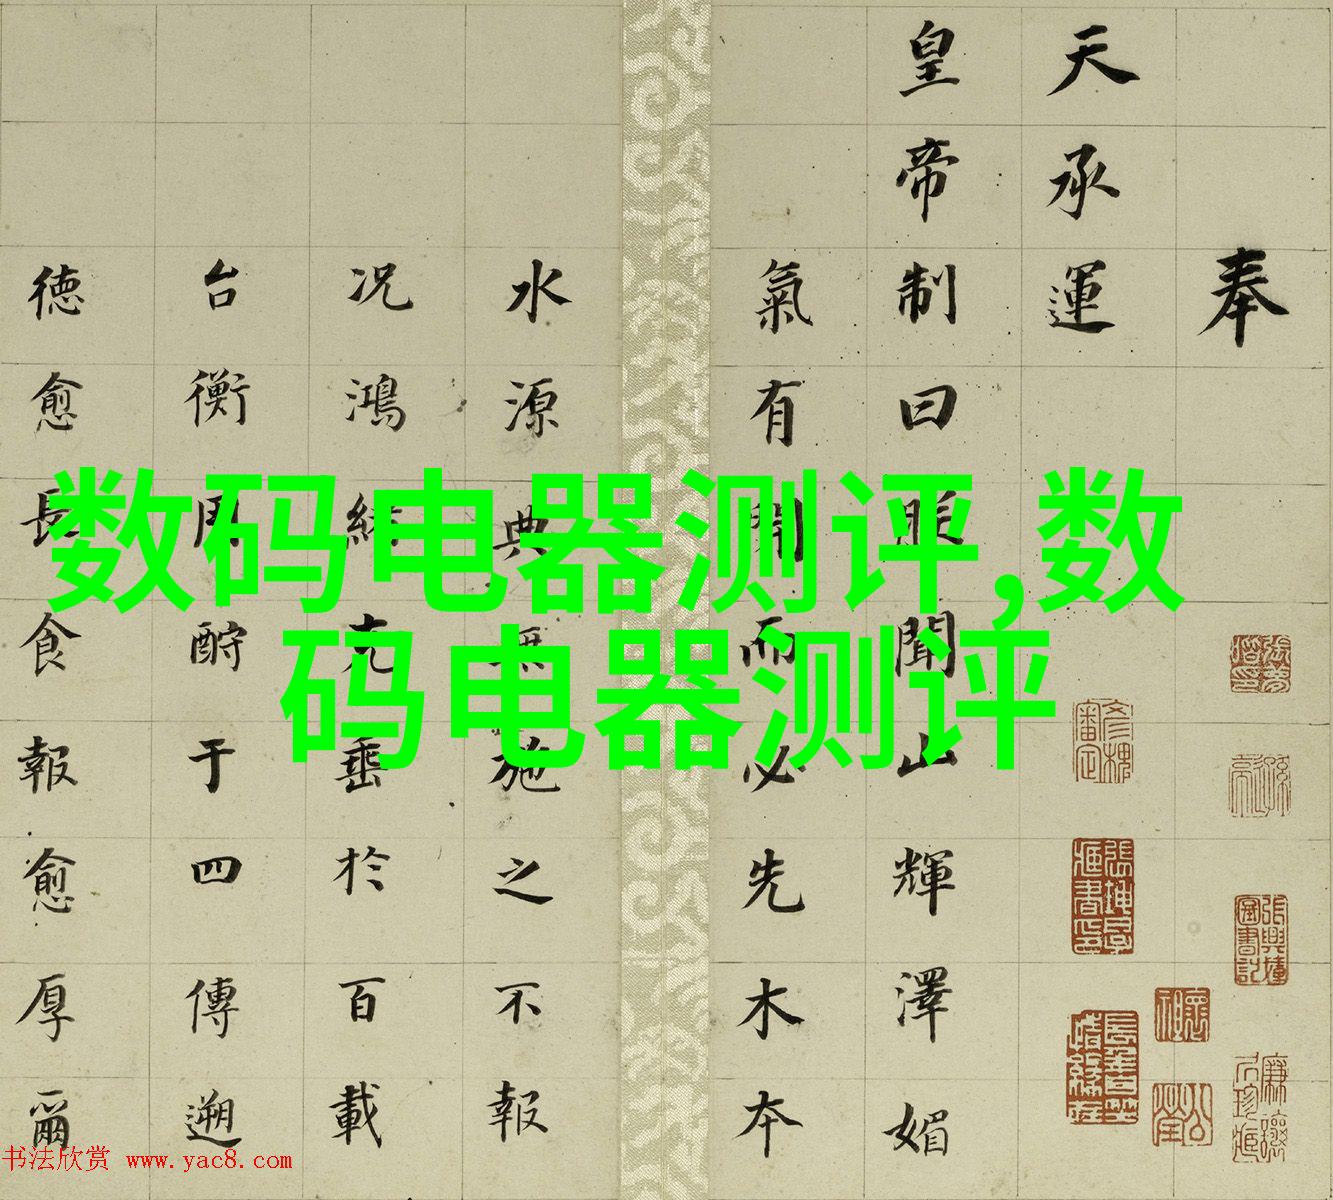 奉
天承運
皇帝制曰朕聞山輝澤媚
氣有開而必先木本
水源典無施之不報
况鴻緒克垂於百載
台衡周酹于四傳遡
德愈長食報愈厚爾
数码电器测评,数
码电器测评
书法欣赏 www.yac8.com